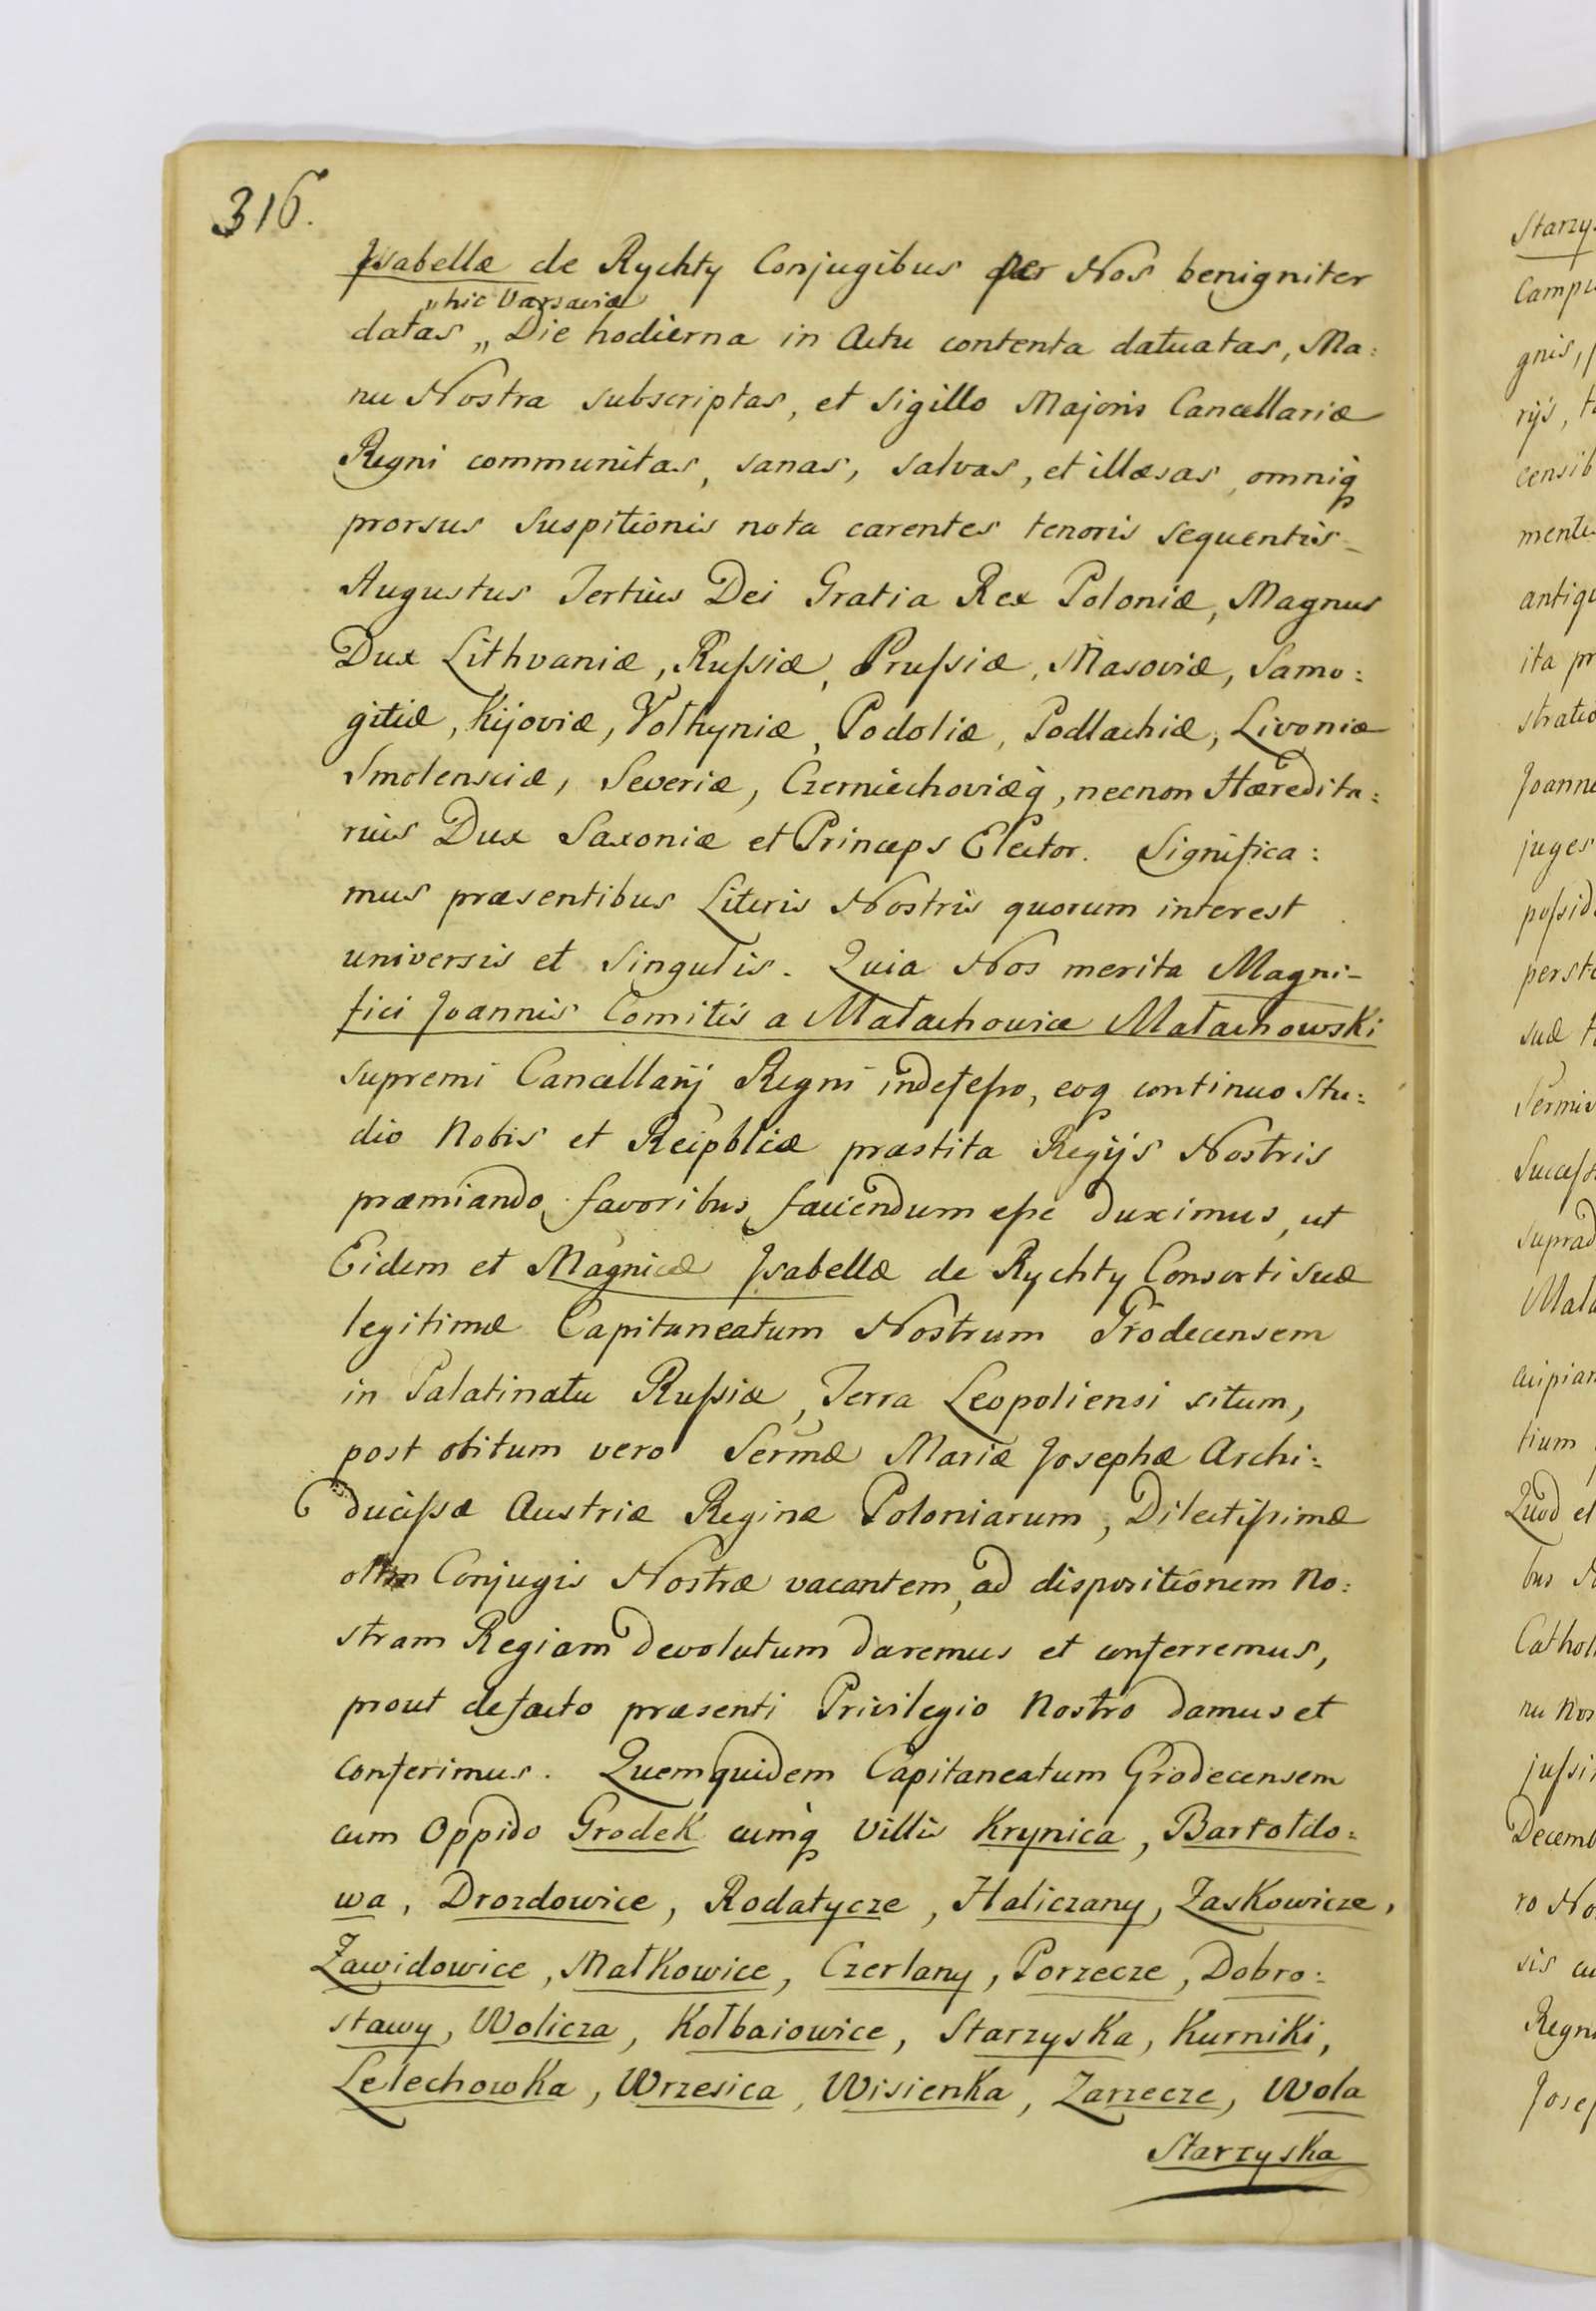 316.
Jsabellæ de Rychty Conjugibus per Nos benigniter
„hic Varsaviæ
datas „ Die hodierna in Actu contenta datuatas, Ma:
nu Nostra subscriptas, et Sigillo Majoris Cancellariæ
Regni communitas, sanas, salvas, et illæsas, omniq
prorsus Suspitionis nota carentes tenoris sequentis –
Augustus Tertius Dei Gratia Rex Poloniæ, Magnus
Dux Lithvaniæ, Rußiæ, Prußiæ, Masoviæ, Samo:
gitiæ, Kijoviæ, Volhyniæ, Podoliæ, Podlachiæ, Livoniæ
Smolensciæ, Severiæ, Czerniechoviæq, necnon Hæredita:
rius Dux Saxoniæ et Princeps Elector. Significa:
mus præsentibus Literis Nostris quorum interest
universis et Singulis. Quia Nos merita Magni-
fici Joannis Comitis a Małachowice Małachowski
supremi Cancellarij Regni indefeßo, eoq continuo Stu:
dio Nobis et Reipblicæ præstita Regijs Nostris
præmiando favoribus, faciendum eße duximus, ut
Eidem et Magnicæ Jsabellæ de Rychty Consorti suæ
legitimæ Capitaneatum Nostrum Grodecensem
in Palatinatu Rußiæ, Terra Leopoliensi situm,
post obitum vero Sermæ Mariæ Josephæ Archi:
ducißæ Austriæ Reginæ Poloniarum, Dilectißimæ
olim Conjugis Nostræ vacantem, ad dispositionem No:
stram Regiam devolutum daremus et conferremus,
prout defacto præsenti Privilegio Nostro damus et
conferimus. Quemquidem Capitaneatum Grodecensem
cum Oppido Grodek cumq Villis Krynica, Bartołdo:
wa, Drozdowice, Rodatycze, Haliczany, Zaskowicze,
Zawidowice, Małkowice, Czerlany, Porzecze, Dobro:
stawy, Wolicza, Kołbaiowice, Starzyska, Kurniki,
Lelechowka, Wrzesica, Wisienka, Zarzecze, Wola
Starzyska